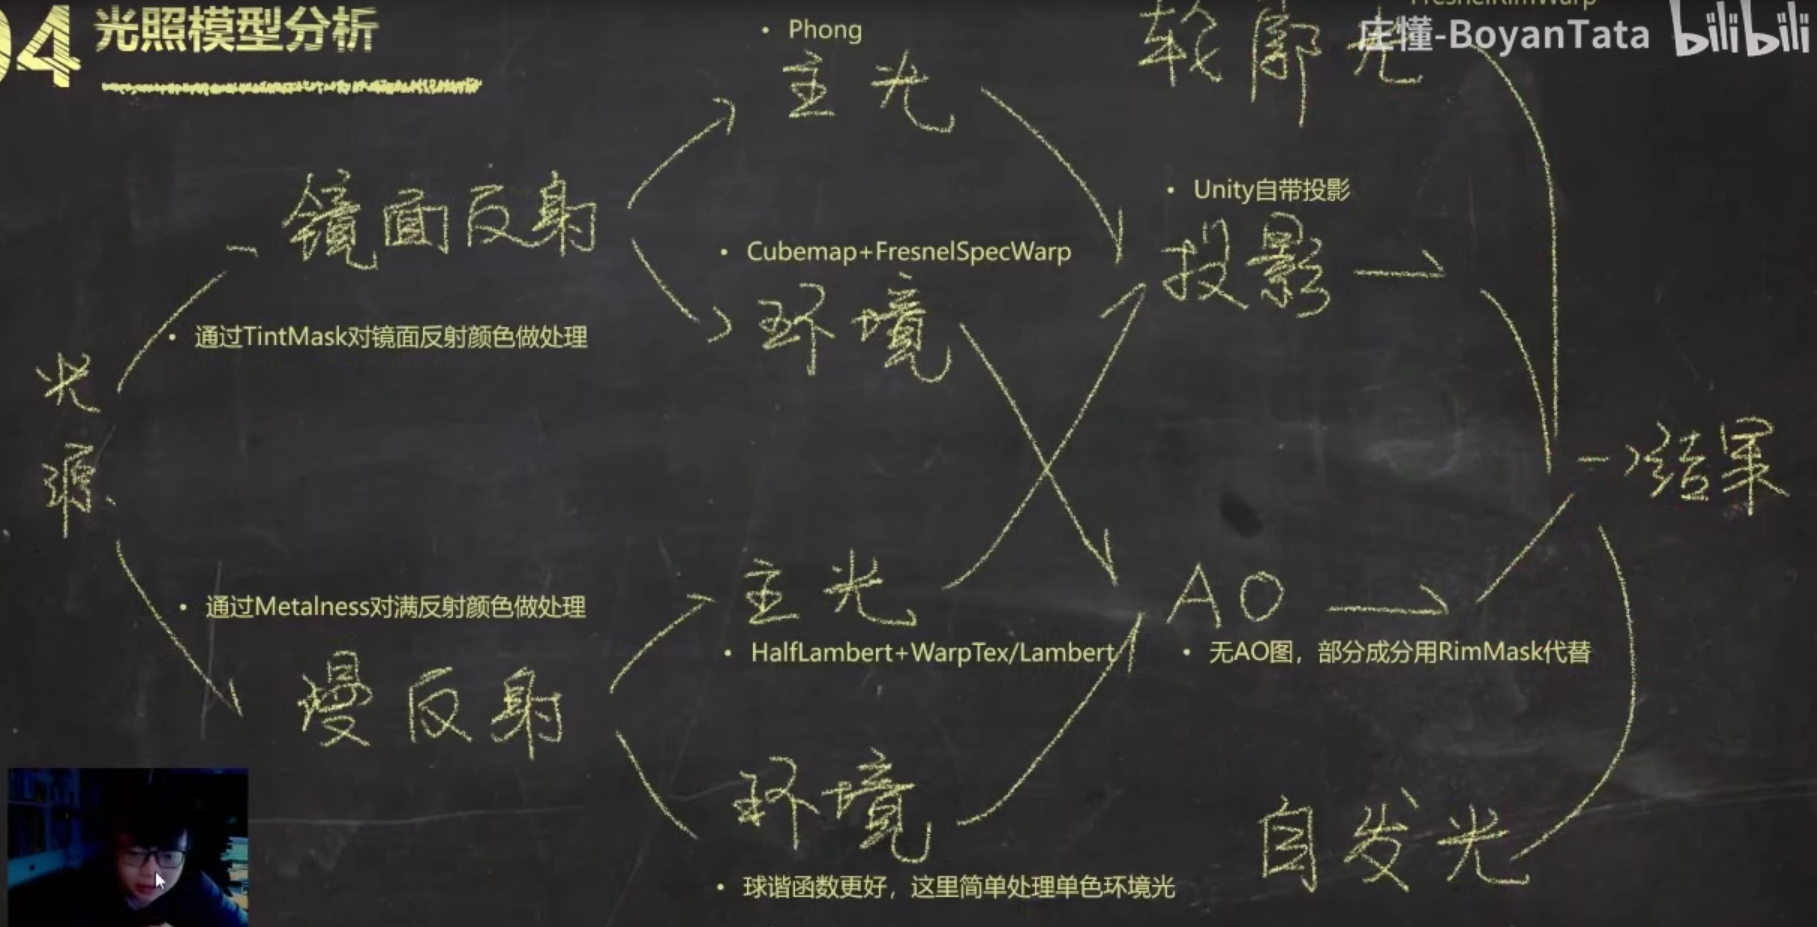 04
光照模型分析
• Phong
主光
轮廓光
FresnelRimWarp
庄懂-BoyanTata bilibili
镜面反射
• Unity自带投影
投影
• Cubemap+FresnelSpecWarp
环境
• 通过TintMask对镜面反射颜色做处理
光源
结果
• 通过Metalness对满反射颜色做处理
主光
AO
• HalfLambert+WarpTex/Lambert
• 无AO图，部分成分用RimMask代替
漫反射
环境
自发光
• 球谐函数更好，这里简单处理单色环境光